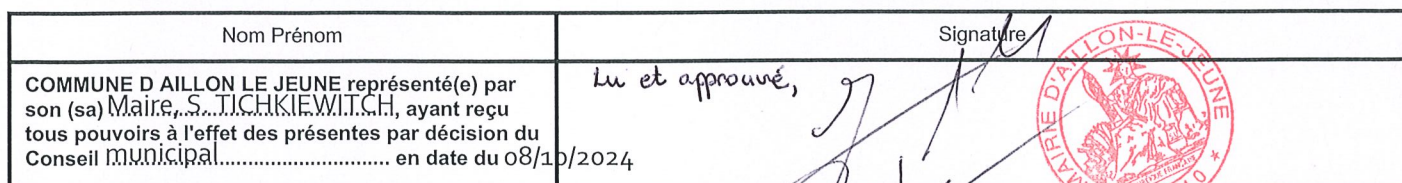 Nom Prénom
Signature
COMMUNE D AILLON LE JEUNE représenté(e) par
son (sa) Maire, S. TICHKIEWITCH, ayant reçu
tous pouvoirs à l'effet des présentes par décision du
Conseil municipal............................. en date du 08/10/2024
Lu et approuvé,
MAIRIE D'AILLON-LE-JEUNE *